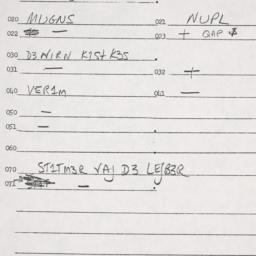 020 MUGNS 021 NUPL
022 — 023 + QAP
030 D3 NIRN K1St K3S
031 — 032 +
040 VER1M 041 —
050 —
051 —
060
070 ST1TM3R VAJ D3 LEJB3R
071 —